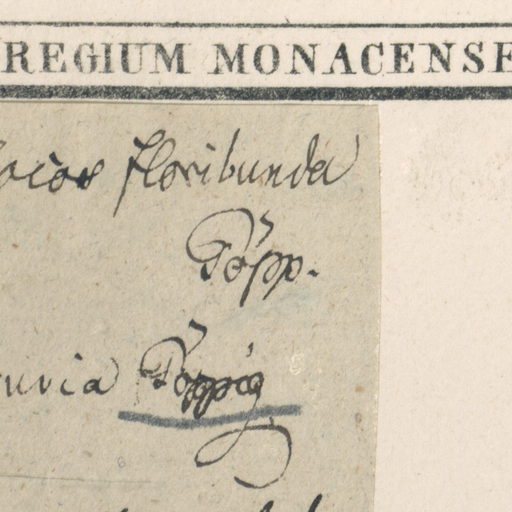 REGIUM MONACENSE
floribunda
Pöpp.
uvia Pöppig